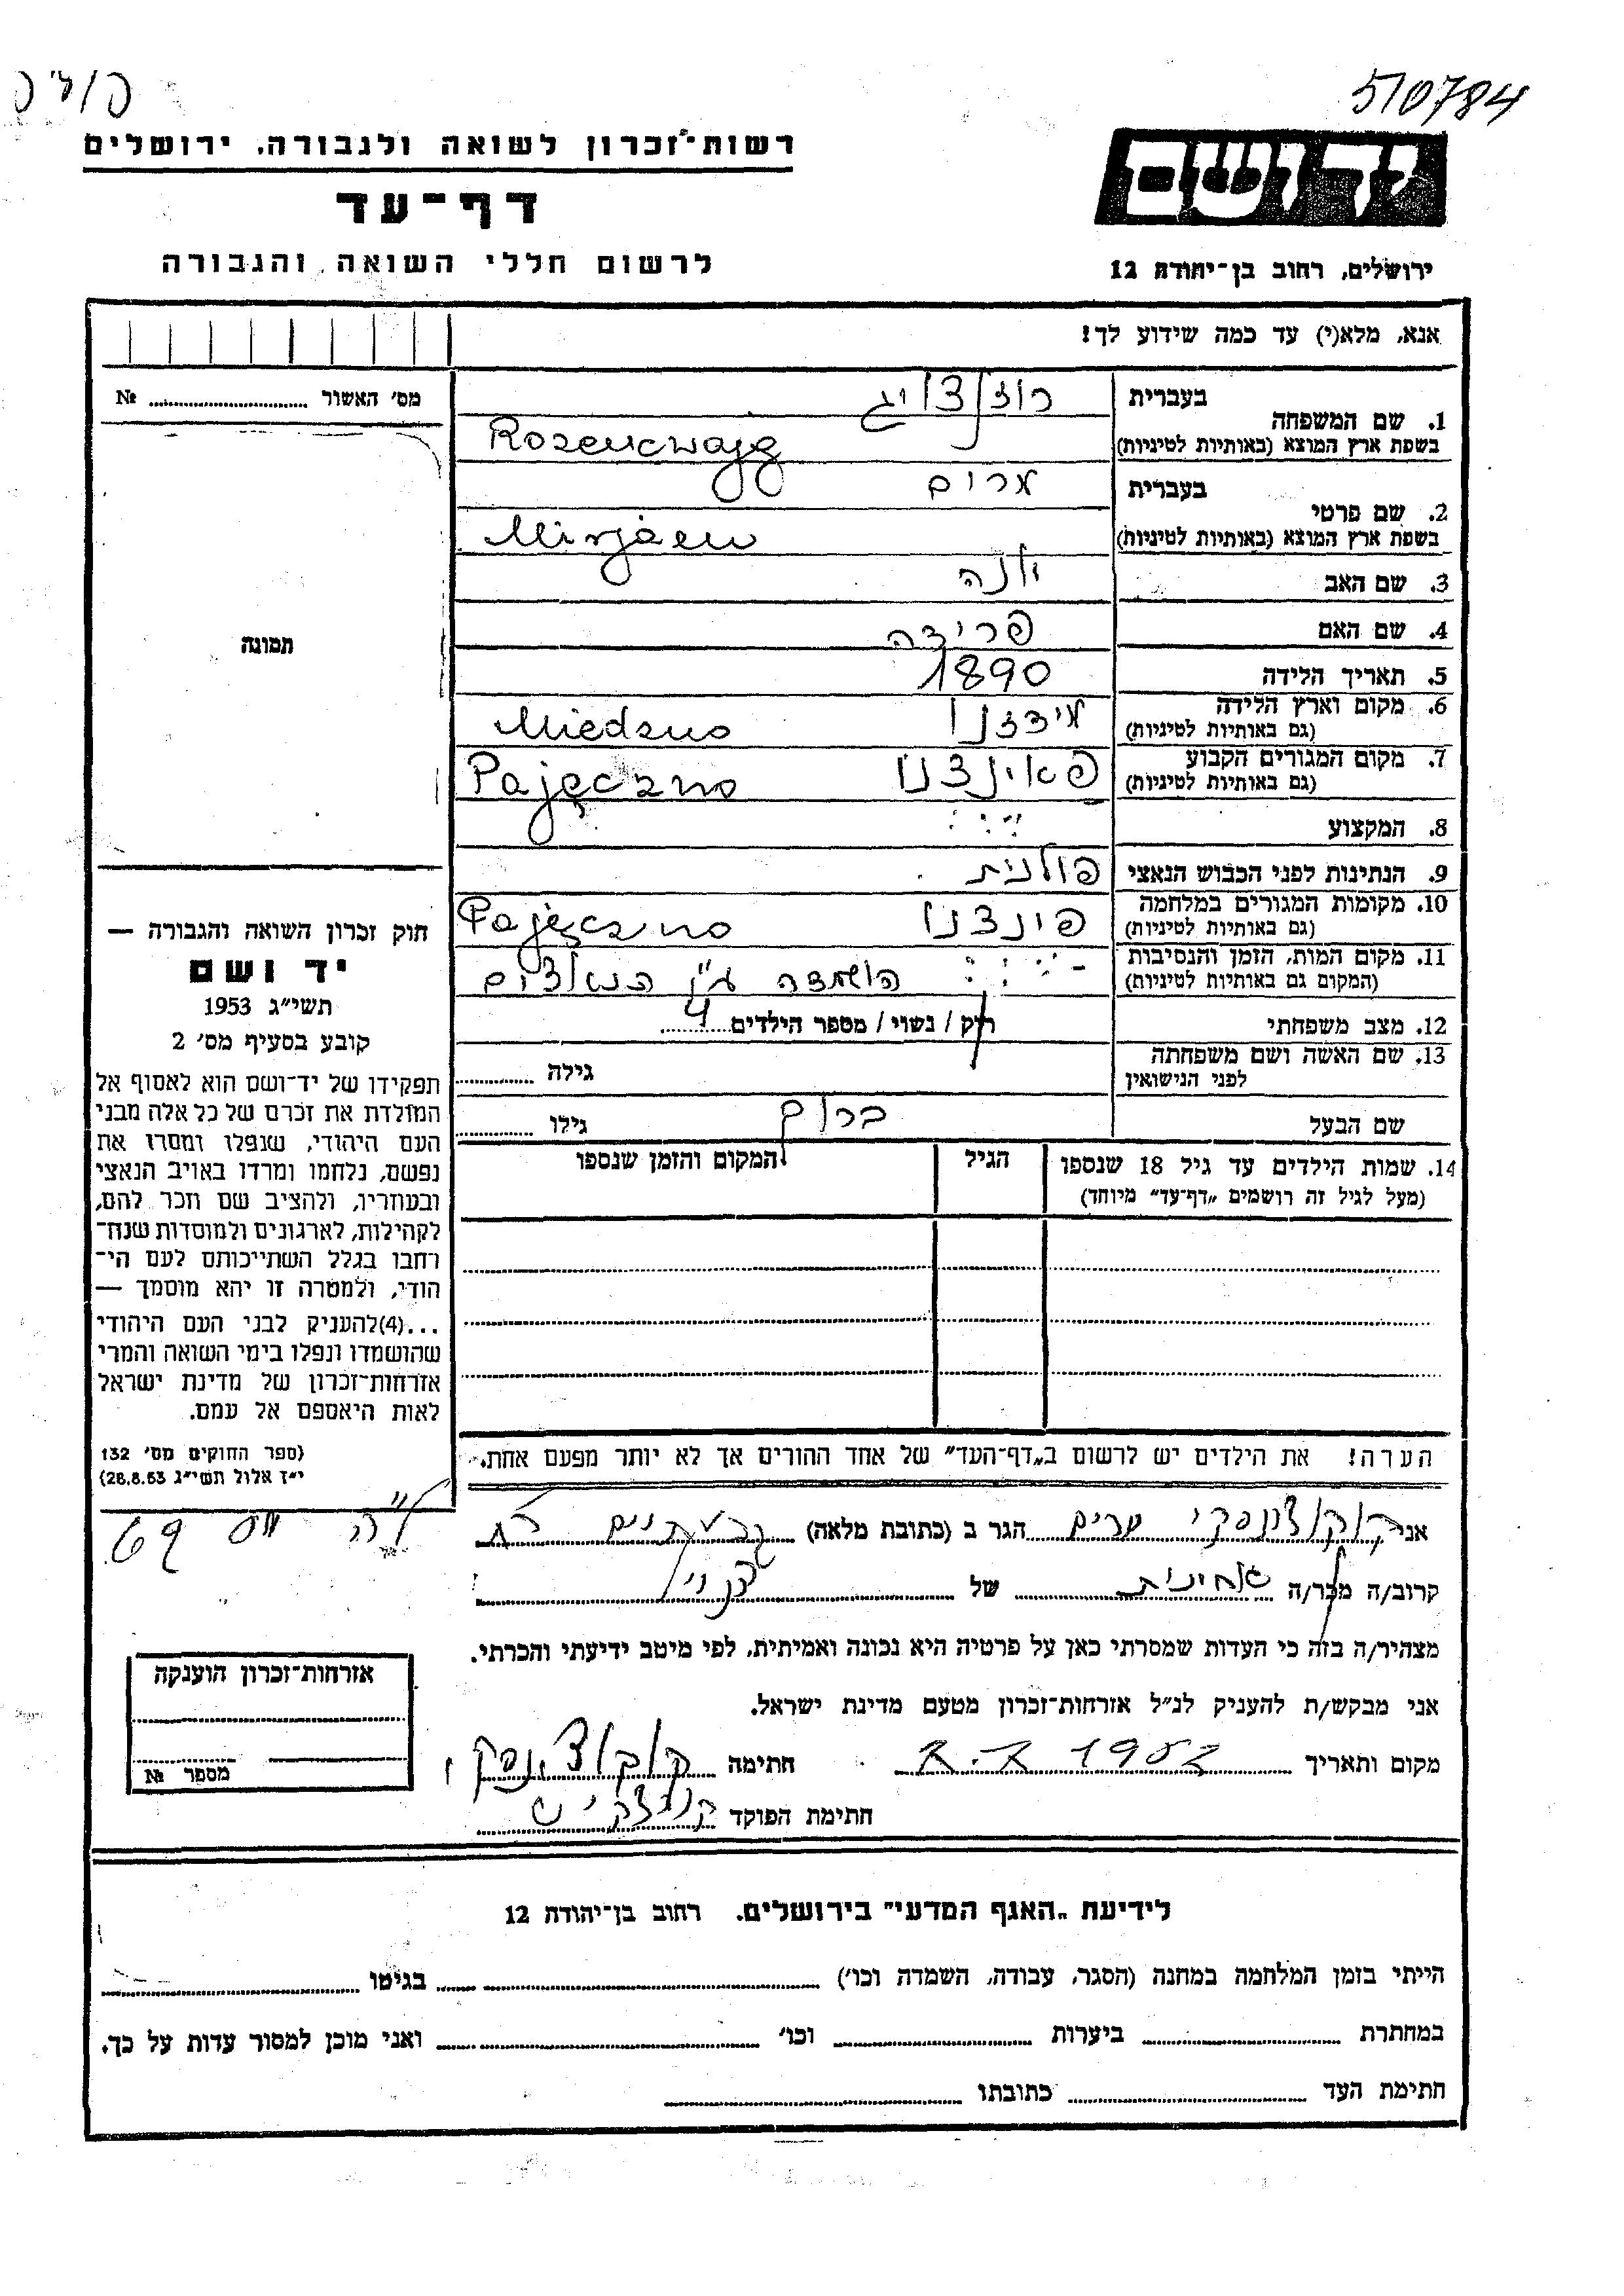 510784
רשות־זכרון לשואה ולגבורה, ירושלים
יד ושם
דף־עד
לרשום חללי השואה והגבורה
ירושלים, רחוב בן־יהודה 12
אנא, מלא(י) עד כמה שידוע לך!
מס' האשור № 
1. שם המשפחה בעברית
רוזנצויג
בשפת ארץ המוצא (באותיות לטיניות)
Rosencwajg
2. שם פרטי בעברית
מרים
בשפת ארץ המוצא (באותיות לטיניות)
Mirjam
3. שם האב יונה
4. שם האם פרידה
5. תאריך הלידה 1890
6. מקום וארץ הלידה
(גם באותיות לטיניות)
מידזנו Miedzno
7. מקום המגורים הקבוע
(גם באותיות לטיניות)
פאינצנו Pajęczno
8. המקצוע
9. הנתינות לפני הכבוש הנאצי פולנית
10. מקומות המגורים במלחמה
(גם באותיות לטיניות)
פינצנו Pajęczno
11. מקום המות, הזמן והנסיבות
(המקום גם באותיות לטיניות)
הושמדה ע"י הנאצים
12. מצב משפחתי רוק / נשוי / מספר הילדים 4
13. שם האשה ושם משפחתה
לפני הנישואין
גילה
שם הבעל ברוך גילו
14. שמות הילדים עד גיל 18 שנספו
(מעל לגיל זה רושמים „דף־עד" מיוחד)
הגיל
המקום והזמן שנספו
תמונה
חוק זכרון השואה והגבורה —
יד ושם
תשי"ג 1953
קובע בסעיף מס' 2
תפקידו של יד־ושם הוא לאסוף אל
המולדת את זכרם של כל אלה מבני
העם היהודי, שנפלו ומסרו את
נפשם, נלחמו ומרדו באויב הנאצי
ובעוזריו, ולהציב שם וזכר להם,
לקהילות, לארגונים ולמוסדות שנח־
רחבו בגלל השתייכותם לעם הי־
הודי, ולמטרה זו יהא מוסמך —
...(4)להעניק לבני העם היהודי
שהושמדו ונפלו בימי השואה והמרי
אזרחות־זכרון של מדינת ישראל
לאות היאספם אל עמם.
(ספר החוקים מס' 132
י"ז אלול תשי"ג 28.8.53)
הערה! את הילדים יש לרשום ב„דף־העד" של אחד ההורים אך לא יותר מפעם אחת.
אני מרים הגר ב (כתובת מלאה) גבעתיים
69
קרוב/ה מכר/ה אחינית של
מצהיר/ה בזה כי העדות שמסרתי כאן על פרטיה היא נכונה ואמיתית, לפי מיטב ידיעתי והכרתי.
אני מבקש/ת להעניק לנ"ל אזרחות־זכרון מטעם מדינת ישראל.
מקום ותאריך חתימה
חתימת הפוקד
אזרחות־זכרון הוענקה
מספר №
לידיעת „האגף המדעי" בירושלים, רחוב בן־יהודה 12
הייתי בזמן המלחמה במחנה (הסגר, עבודה, השמדה וכו') בגיטו
במחתרת ביערות וכו' ואני מוכן למסור עדות על כך.
חתימת העד כתובתו